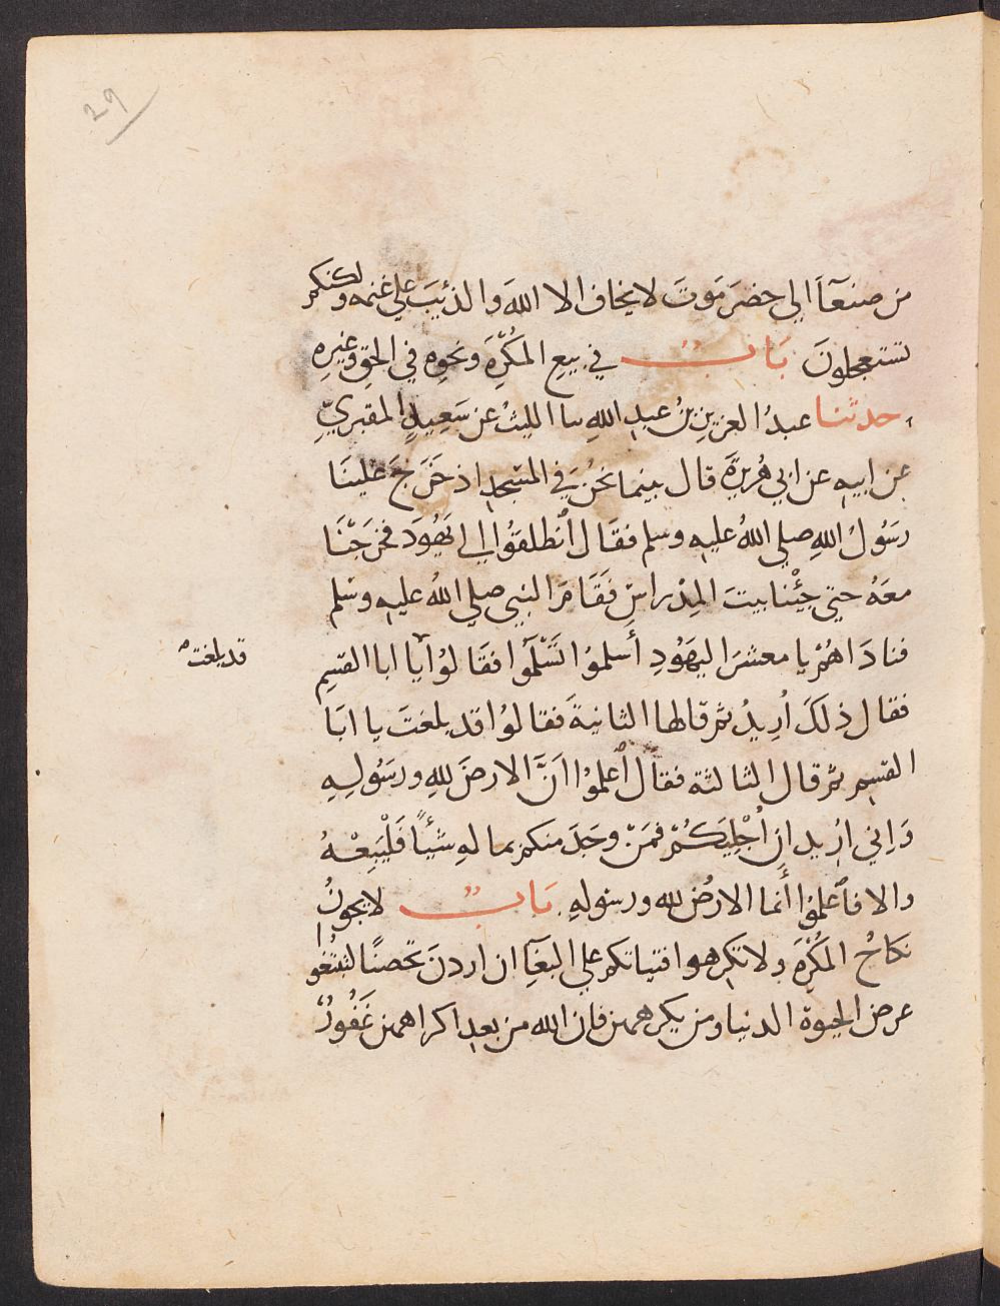 29
من صنعآءَ الي حضرَ مَوتَ لا يخاف الا اللهَ والذئبَ علي غنمه ولكنكم
تستعجلونَ بَابٌ في بيعِ المُكْرَهِ ونحوِه في الحق وغيرِه
حدثنا عبدُ العزيزِ بنُ عبدِ اللهِ سا الليثُ عن سَعِيدٍ المقبريِّ
عن ابيهِ عن ابي هُريرَةَ قال بينما نحنُ في المسَجِدِ اذ خَرَجَ عَلينَا
رسَوُلُ اللهِ صلي اللهُ عليهِ وسلم فقَال اُنطلقوُا الي يَهُودَ فخرَجْنَا
معَهُ حتي جِئْنا بيتَ المِدْراسِ فَقَامَ النبي صلي اللهُ عليهِ وسَلم
فنادَاهُمْ يا معشرَ اليهَوُدِ أسلموُا تَسْلَموُا فقَالوُا يا ابا القسِمِ
قد بلغت
فقال ذلكَ اُرِيدُ ثم قالها الثانيةَ فقالوُا قد بلغتَ يا ابَا
القسِمِ ثم قال الثالثة فقال اُعلموُا انَّ الارضَ للهِ ورسَوُلهِ
وَاِني اُريد ان اُجْلِيَكمُْ فمَنْ وجَدَ منكم بمالهِ شيئًا فَلْيَبِعْهُ
والا فاعلموُا أنما الارضُ لله ورسوُلهِ بَابٌ لا يجوزُ
نكاحُ المُكْرَهِ ولا تكرهوا فتياتكم علي البغآءِ ان اردنَ تحصنًا لتبتُغو
عرض الحيوة الدنيا ومن يكرههن فان الله من بعد اكراههن غَفُورٌ